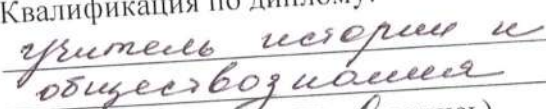 Квалификация по диплому:
учитель истории и
обществознания